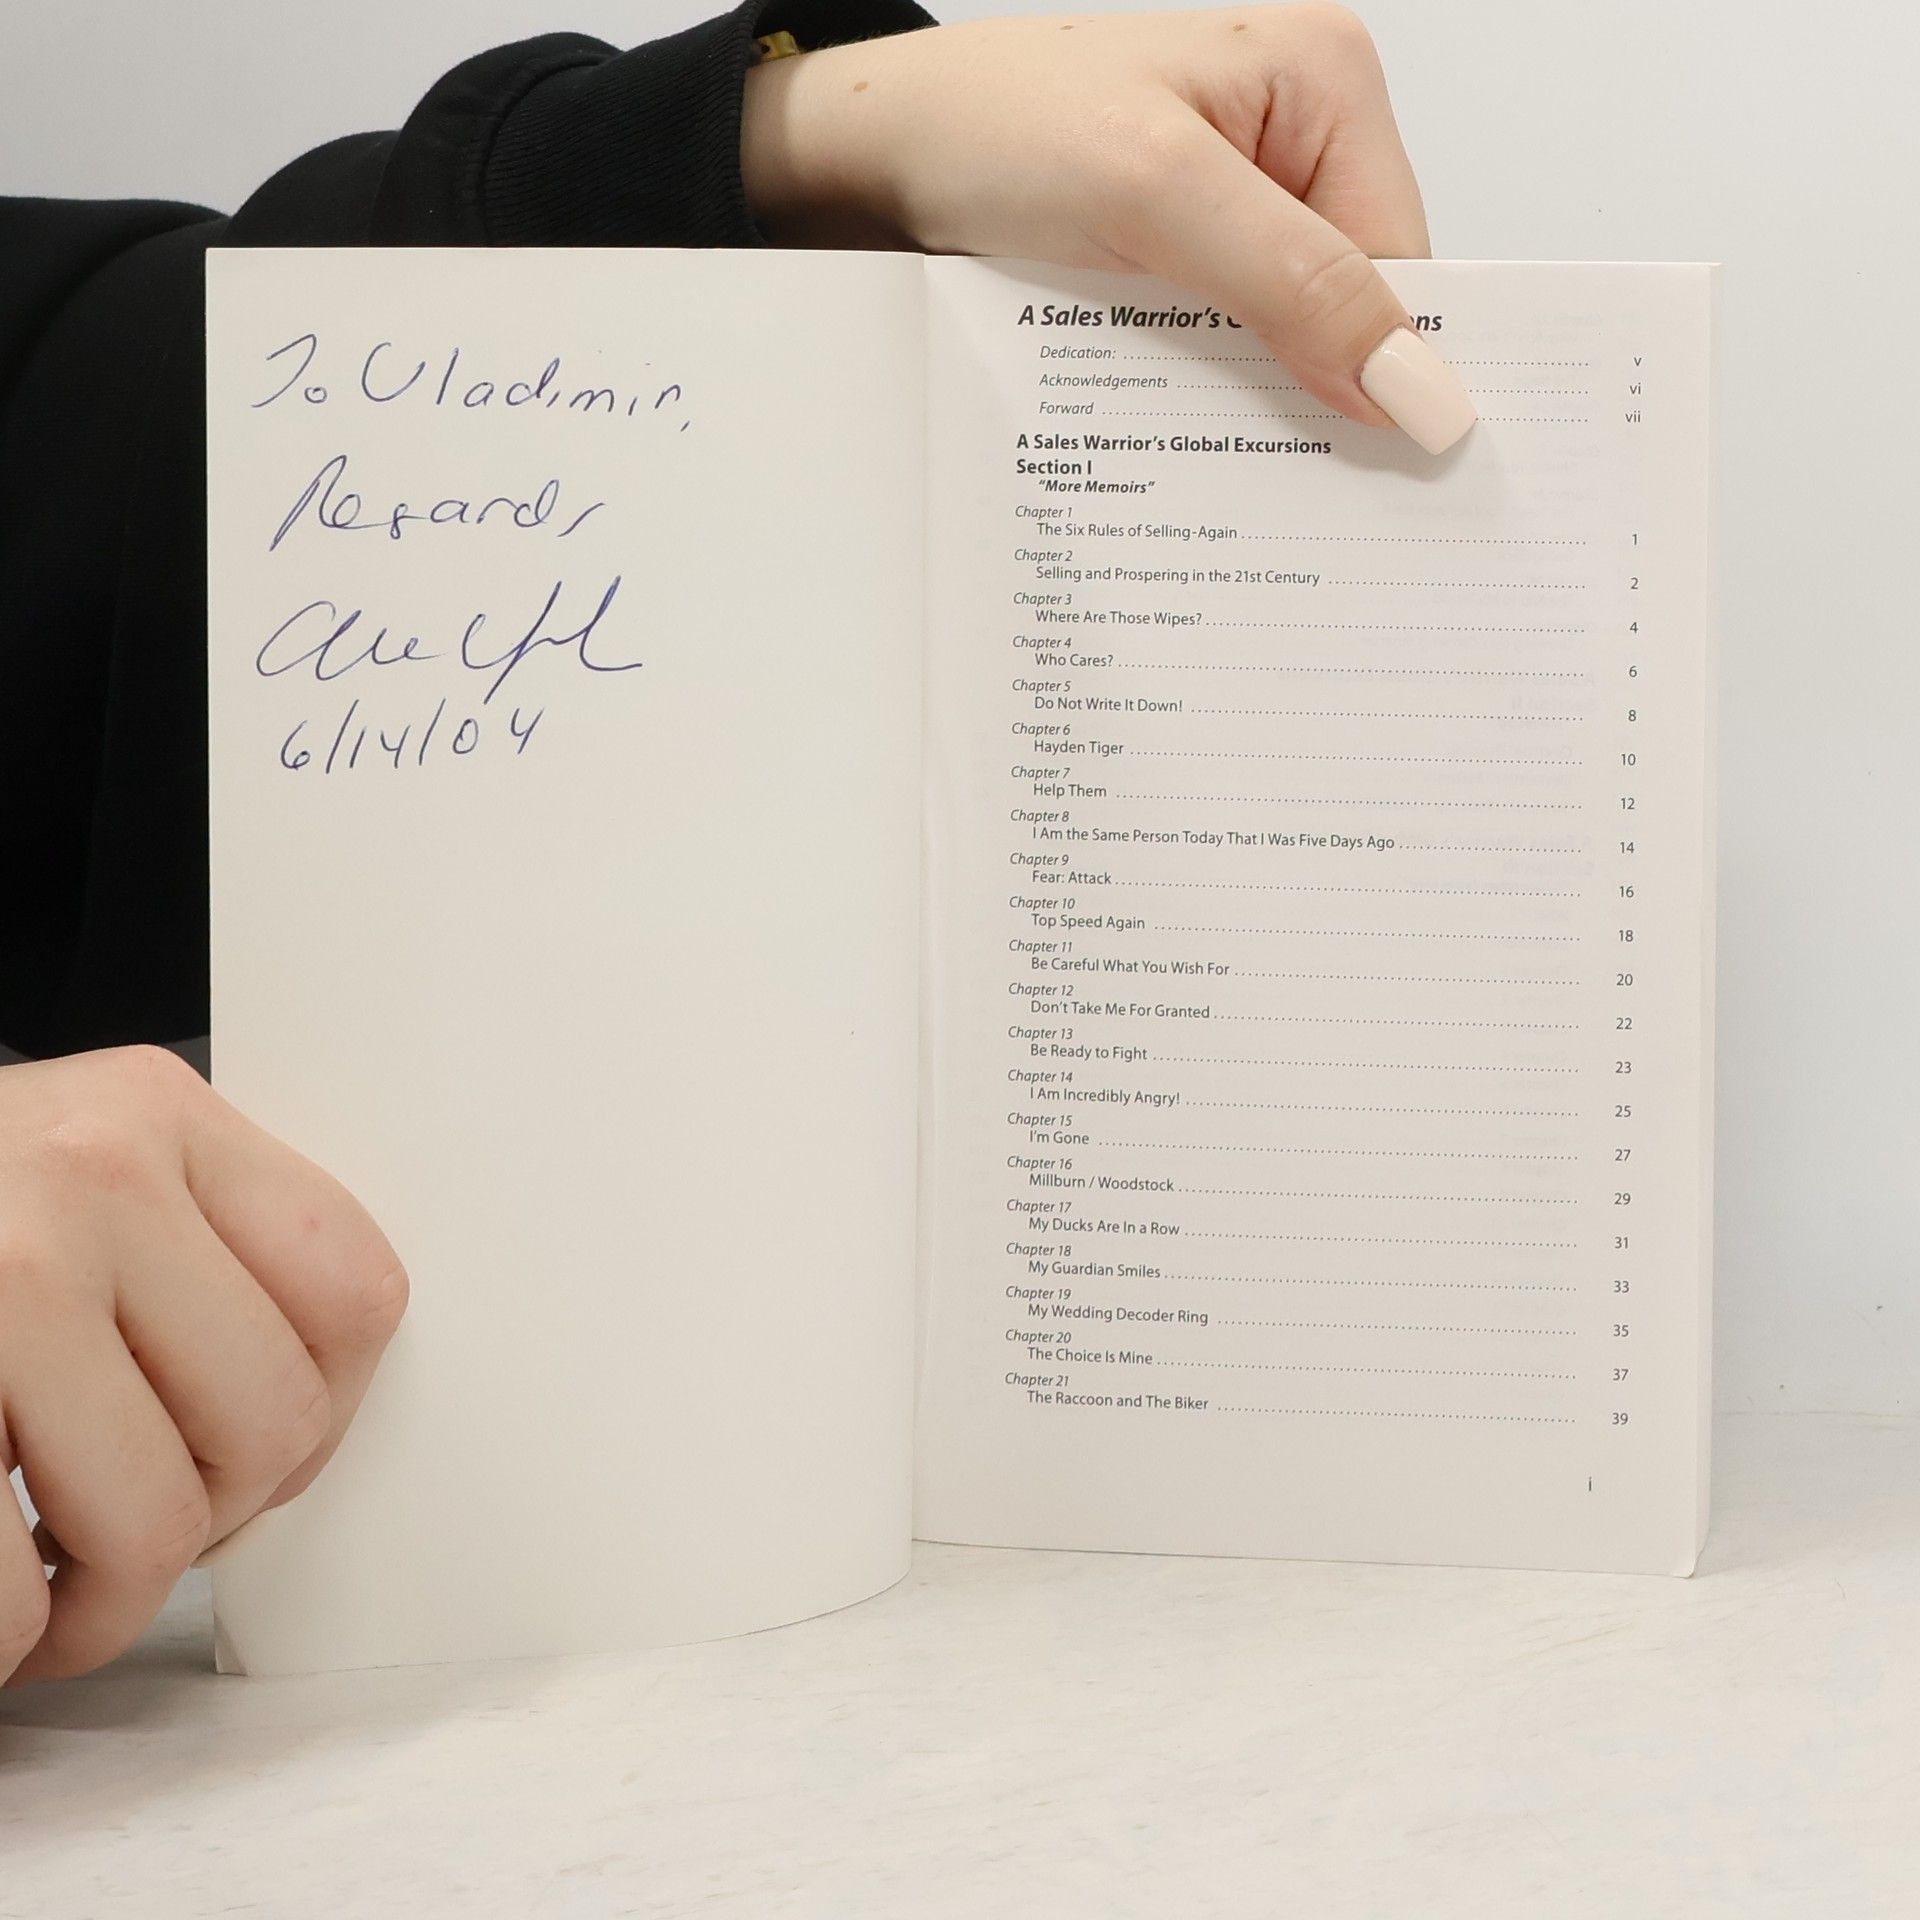 To Vladimir,
Regards
6/14/04
A Sales Warrior's
Dedication: ........ v
Acknowledgements ........ vi
Forward ........ vii
A Sales Warrior's Global Excursions
Section I
"More Memoirs"
Chapter 1
The Six Rules of Selling-Again ........ 1
Chapter 2
Selling and Prospering in the 21st Century ........ 2
Chapter 3
Where Are Those Wipes? ........ 4
Chapter 4
Who Cares? ........ 6
Chapter 5
Do Not Write It Down! ........ 8
Chapter 6
Hayden Tiger ........ 10
Chapter 7
Help Them ........ 12
Chapter 8
I Am the Same Person Today That I Was Five Days Ago ........ 14
Chapter 9
Fear: Attack ........ 16
Chapter 10
Top Speed Again ........ 18
Chapter 11
Be Careful What You Wish For ........ 20
Chapter 12
Don't Take Me For Granted ........ 22
Chapter 13
Be Ready to Fight ........ 23
Chapter 14
I Am Incredibly Angry! ........ 25
Chapter 15
I'm Gone ........ 27
Chapter 16
Millburn / Woodstock ........ 29
Chapter 17
My Ducks Are In a Row ........ 31
Chapter 18
My Guardian Smiles ........ 33
Chapter 19
My Wedding Decoder Ring ........ 35
Chapter 20
The Choice Is Mine ........ 37
Chapter 21
The Raccoon and The Biker ........ 39
i